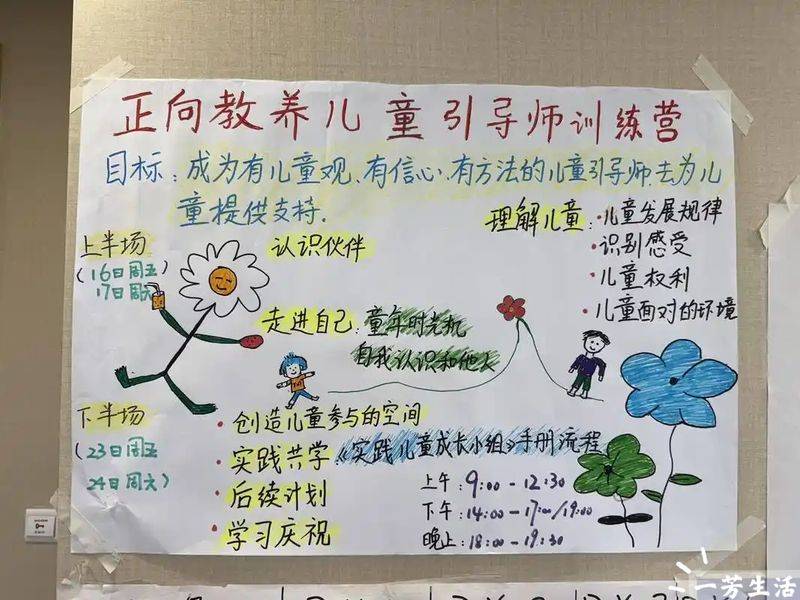 正向教养儿童引导师训练营
目标:成为有儿童观、有信心、有方法的儿童引导师,去为儿
童提供支持.
上半场
(16日周五
17日周六)
认识伙伴
理解儿童:
·儿童发展规律
·识别感受
·儿童权利
·儿童面对的环境
走进自己:童年时光机
自我认识和他人
下半场
(23日周五
24日周六)
·创造儿童参与的空间
·实践共学《实践儿童成长小组》手册流程
·后续计划
·学习庆祝
上午:9:00-12:30
下午:14:00-17:00/19:00
晚上:18:00-19:30
一芳生活